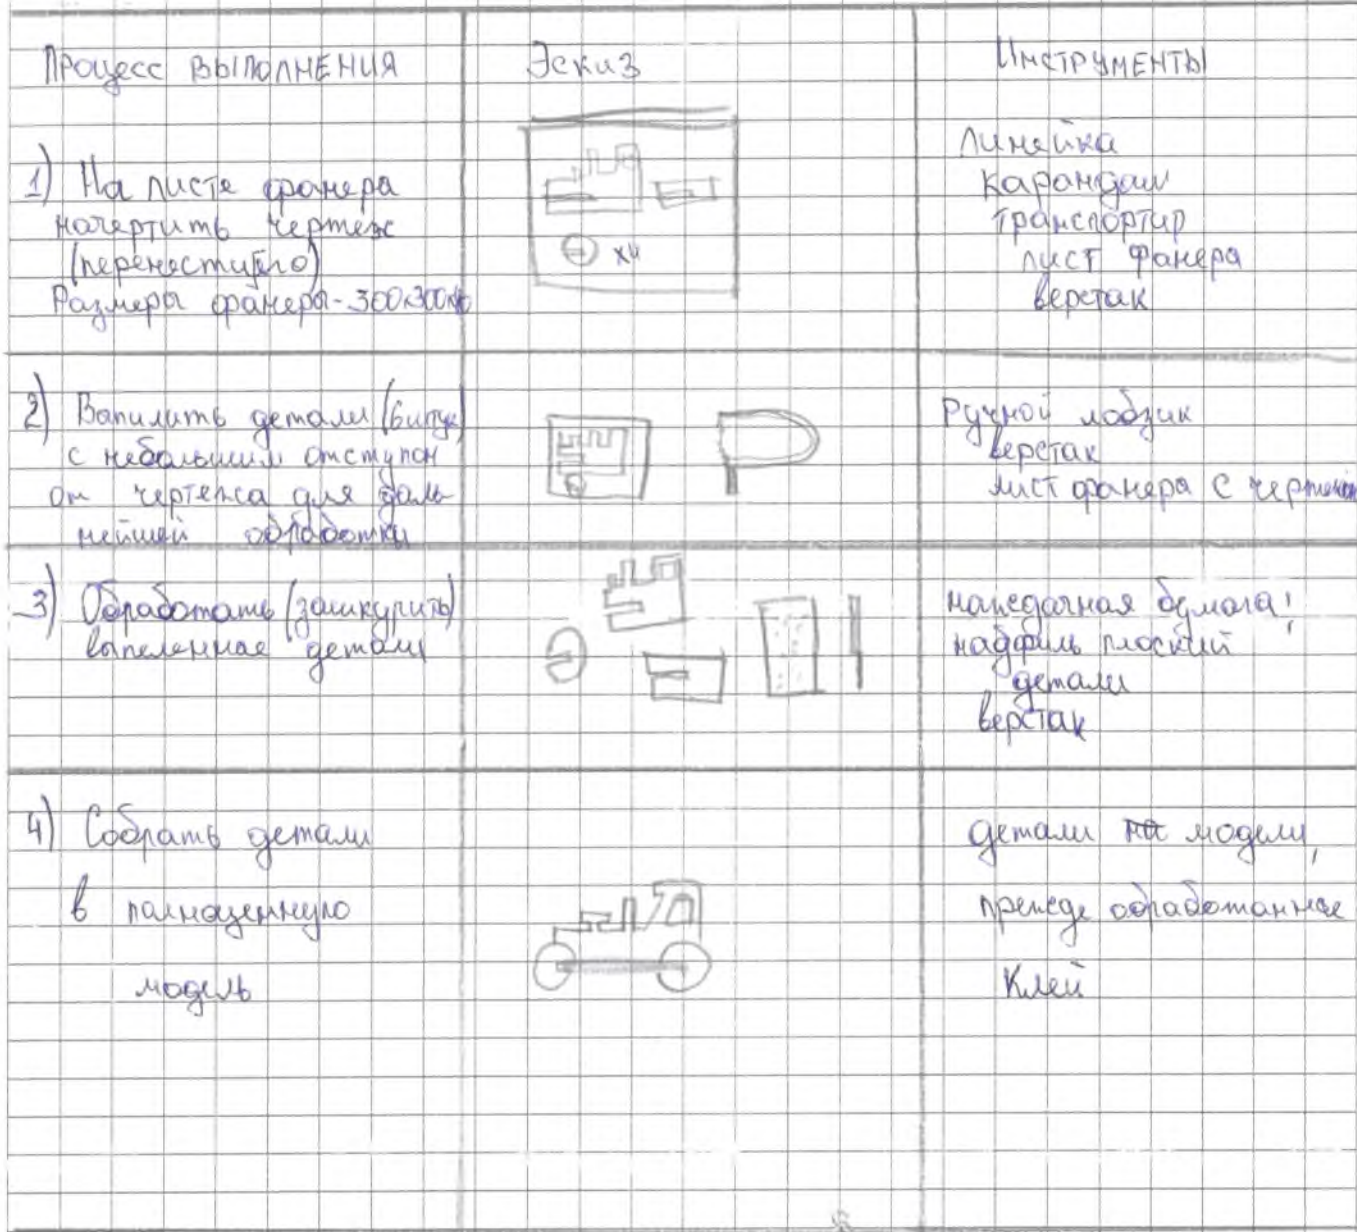 Процесс выполнения
Эскиз
Инструменты
1) На листе фанера
начертить чертеж
(перенести его)
Размеры фанеры - 300х300х
х4
Линейка
Карандаш
Транспортир
лист фанера
верстак
2) Вапилить детали
с небольшим отступом
от чертежа для даль
нейшей обработки
Ручной лобзик
верстак
лист фанера с чертежом
3) Обработать (зашкурить)
выпеленные детали
наждачная бумага!
надфиль плоский
детали
верстак
4) Собрать детали
в полноценную
модель
детали модели,
прежде обработанные
Клей